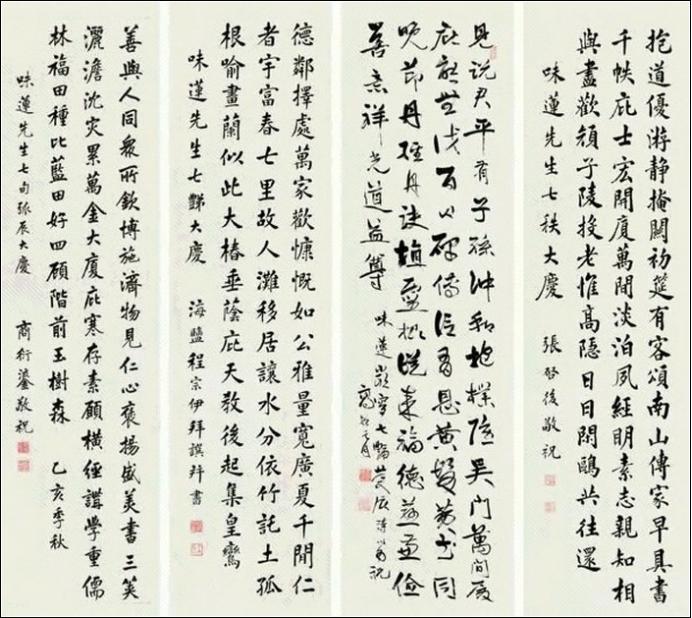 抱道優游静掩關初筵有客頌南山傳家早具書
千帙庇士宏開廈萬間淡泊夙經明素志親知相
與盡歡顔子陵投老惟高隱日日閒鷗共往還
味蓮先生七秩大慶 張啓後敬祝
見説君平有子孫沖和抱樸隱吳門萬间厦
庇世百碑傳信有黄髮同
晚節丹丹诀植靈福德儉
善祥光道益尊
德鄰擇處萬家歡慷慨如公雅量寬廣夏千間仁
者宇富春七里故人灘移居讓水分依竹託土孤
根喻畫蘭似此大椿垂蔭庇天教後起集皇鸞
味蓮先生七豑大慶 海鹽程宗伊拜譔并書
善與人同衆所欽博施濟物見仁心褒揚盛美書三筴
灑澹沈灾累萬金大廈庇寒存素願橫經講學重儒
林福田種比藍田好四顧階前玉樹森 乙亥季秋
味蓮先生七旬辰大慶 商衍鎏敬祝